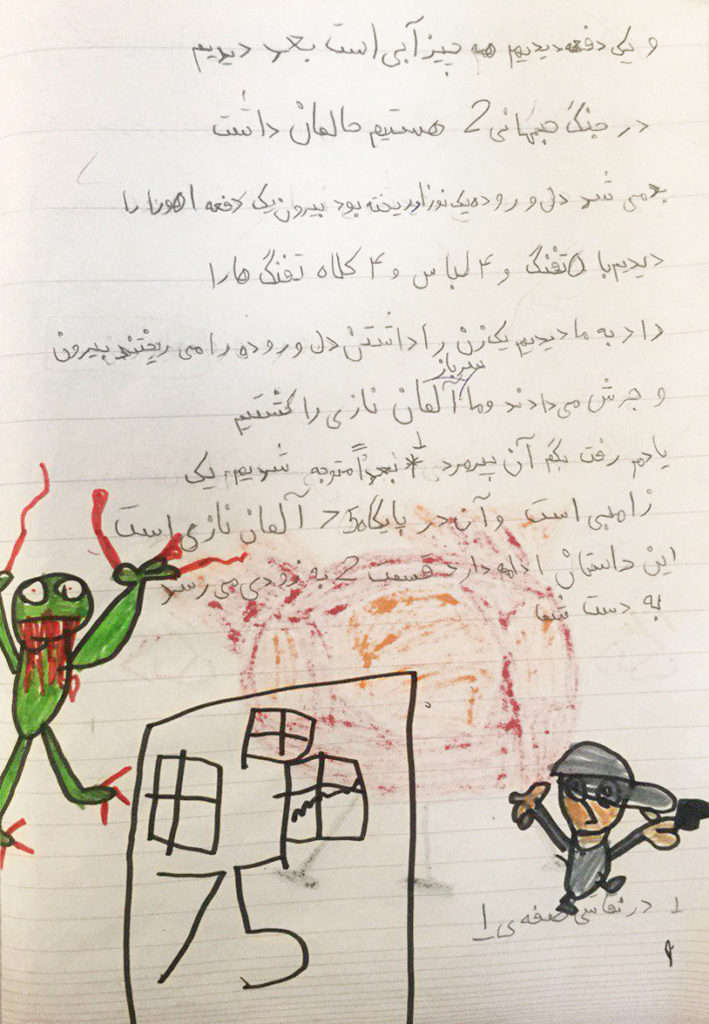 و یک دفعه دیدیم همه چیز آبی است بعد دیدیم
در جنگ جهانی 2 هستیم حالمان داشت
بد می شد دل و روده یک نوزاد ریخته بود بیرون یک دفعه را
دیدیم با ۵ تفنگ و ۴ لباس و ۴ کلاه تفنگ ها را
داد به ما دیدیم یک زن را داشتن دل و روده را می ریختند بیرون
و جرش می دادند و ما سرباز آلمان نازی را کشتیم
یادم رفت بگم آن پیرمرد 1* بعداً متوجه شدیم یک
زامبی است و آن در پایگاه 75 آلمان نازی است
این داستان ادامه دارد قسمت 2 به زودی می رسد
به دست شما
75
1 در نقاشی صفه ی 1